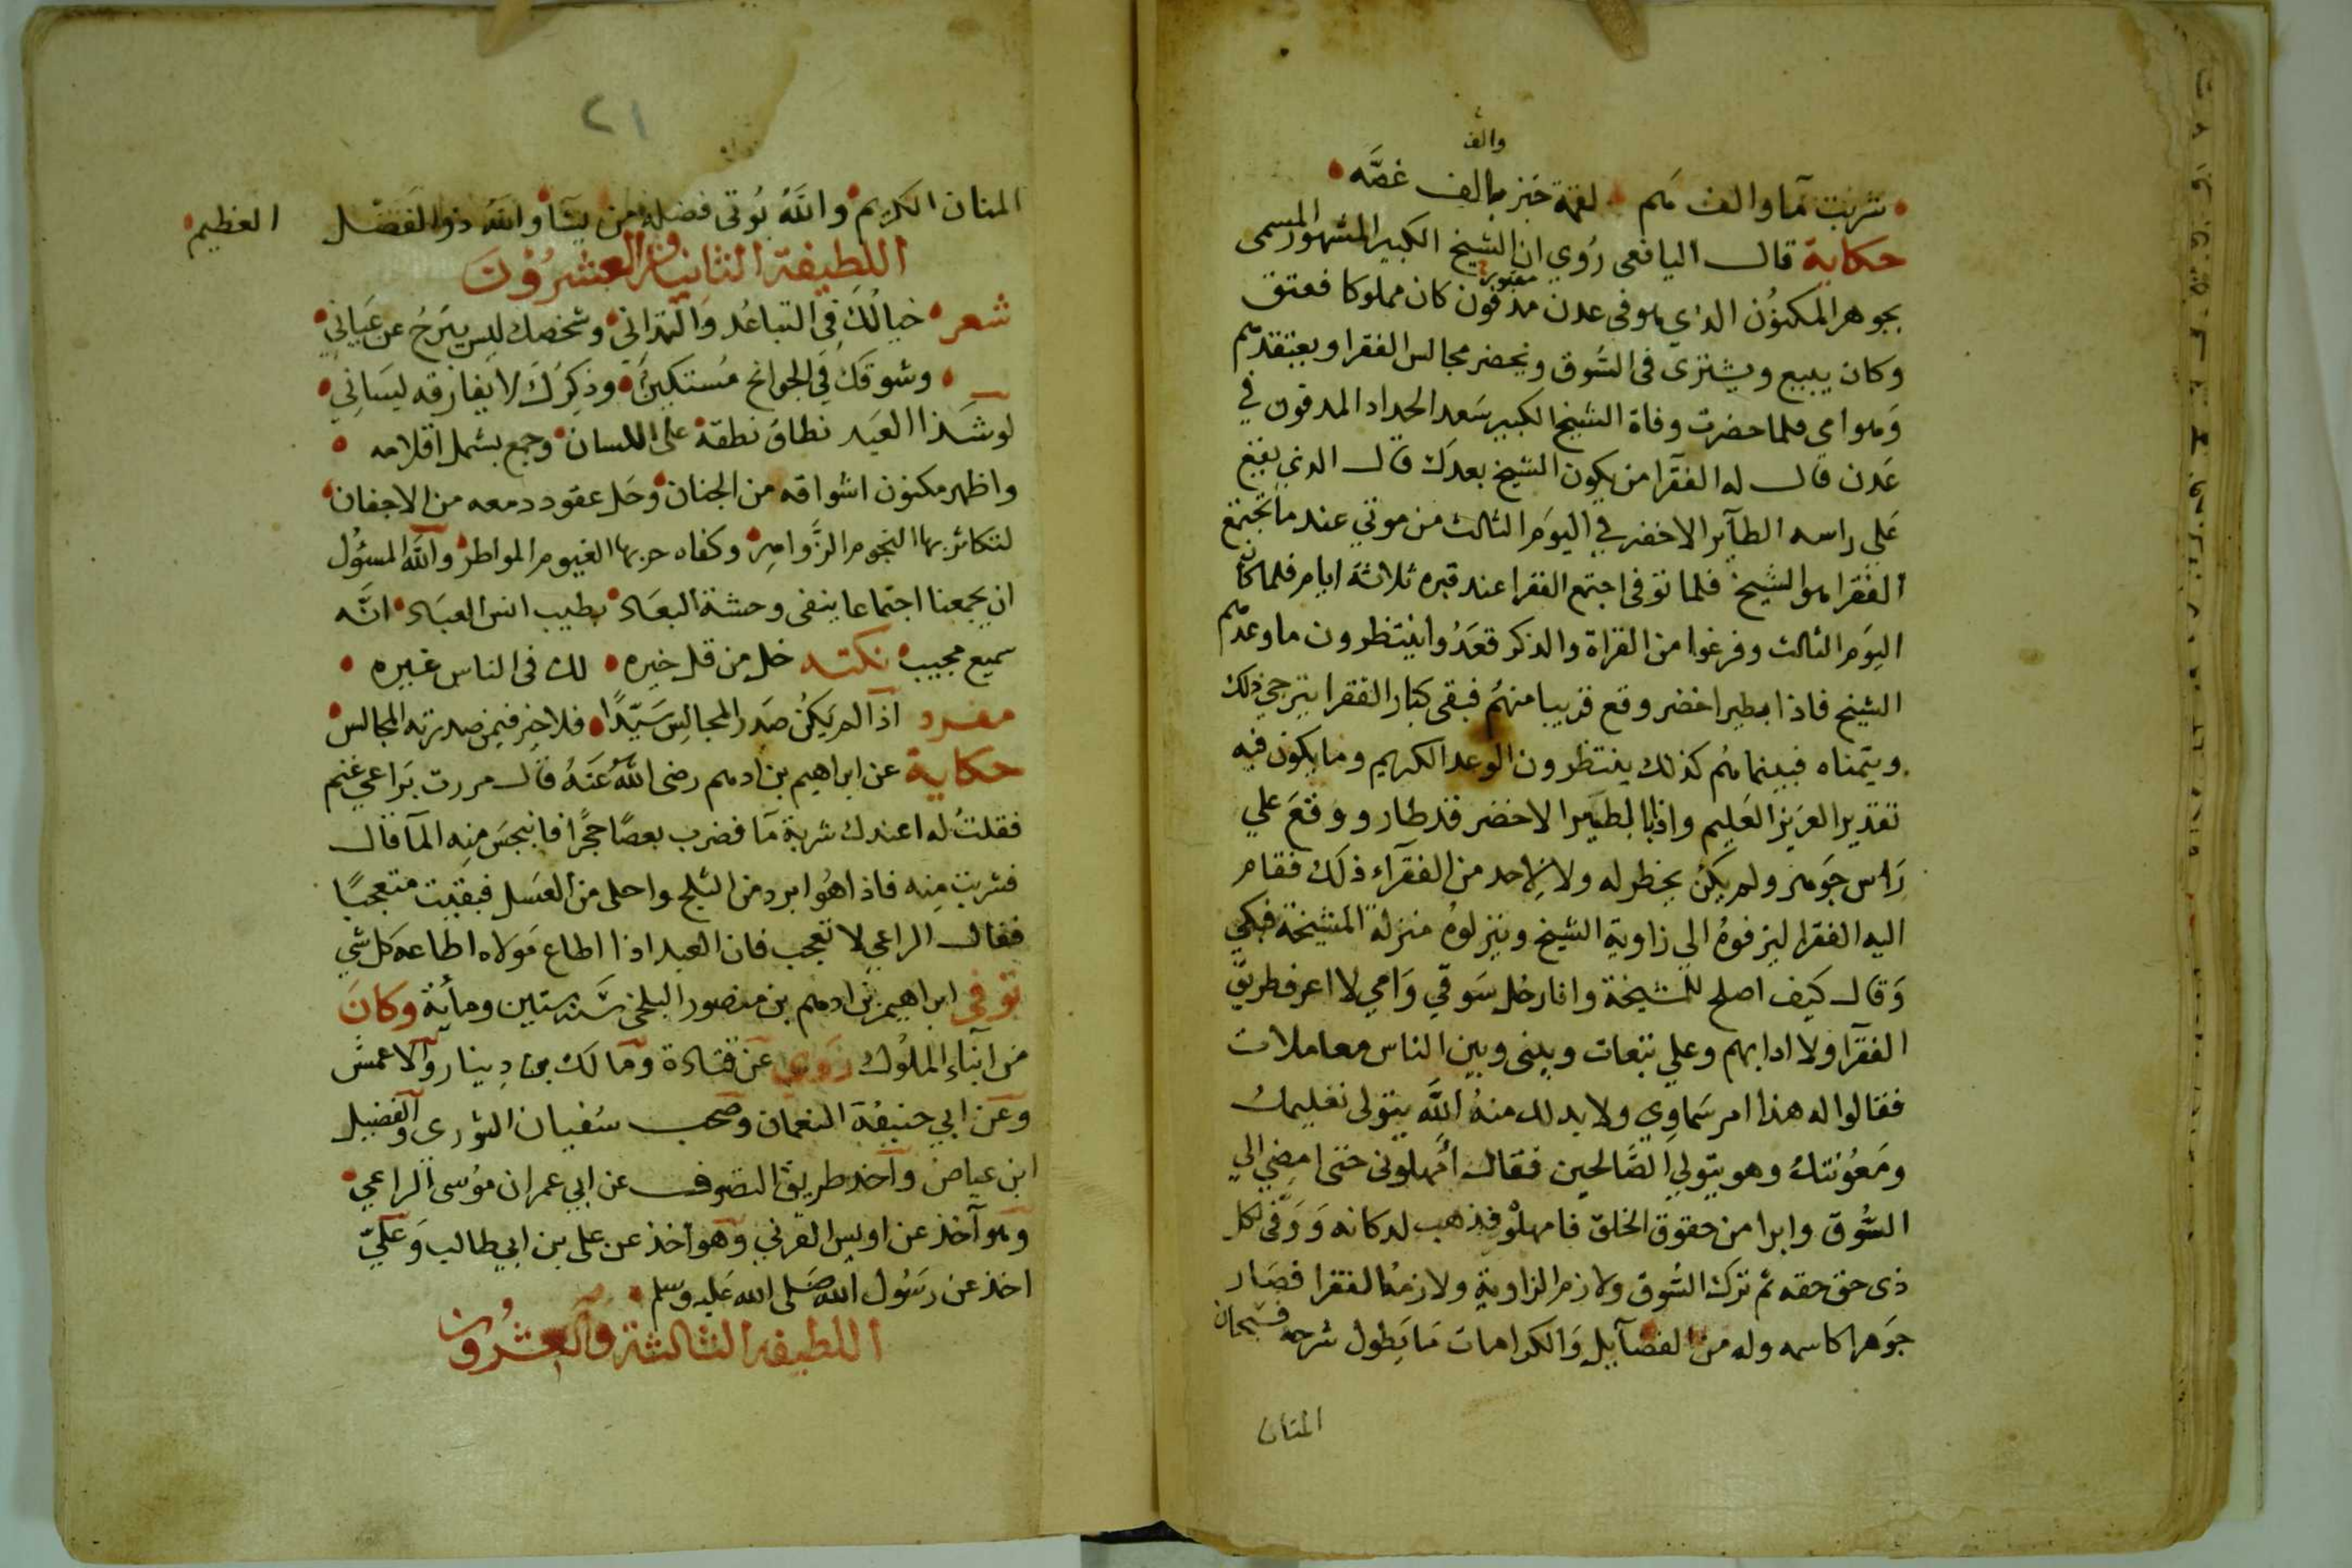 والف
شربت مآ والف هم لقمة خبز بالف غصَّه
حكاية قال اليافعى رُوي ان الشيخ الكبير المشهور المسمى
مقبور
بجوهر المكنوُن الذي هو فى عدن مدفون كان مملوكا فعتق
وكان يبيع ويشترى فى السُوق ويحضر مجالس الفقرا ويعتقدهم
وَهو امي فلما حضرت وفاة الشيخ الكبير سَعد الحداد المدفون في
عَدن قال له الفقرآ من يكون الشيخ بعدَك قال الذي يقع
عَلى راسه الطآير الاخضر في اليوَم الثالث من موتي عند ما تجتمع
الفقرا هو الشيخ فلما توفى اجتمع الفقرا عند قبره ثلاثة ايام فلما كان
اليوَم الثالث وفرغوا من القراة والذكر قعَدُوا ينتظرون ما وعدهم
الشيخ فاذا بطير اخضر وقع قريبا منهُم فبقى كبار الفقرا يترجي ذلك
ويتمناه فبينما هُم كذلك ينتظرون الوعد الكريم وما يكون فيه
تقدير العَزيز العَليم واذا بالطَير الاخضر قد طار ووَقعَ علي
رَاس جَوهر ولم يكُن يخطر له ولا لاِحد من الفقرآء ذلَك فقام
اليه الفقرا ليزفوهُ الي زاوية الشيخ وينزلوهُ منزلة المشيخة فبكي
وَقال كيَف اصلح للمشيخة وانا رجُل سَوقي وَامي لا اعرف طريق
الفقرآ ولا ادابهم وعلي تبعات وبينى وبين الناس معاملات
فقالوا له هذا امر سَماوِي ولا بد لك منهُ اللَّه يتولى تعليمك
ومَعُونتكُ وهو يتولي الصَّالحين فقال أمهلونى حتى امضي الي
السُّوق وابرا من حقوق الخلق فامهلوْه فذهب لدكانه وَوَفّى لكل
ذى حق حقه ثم ترك السُّوق ولازم الزاوية ولازمه الفقرا فصَار
جَوهرا كاسمه وله من الفضآيل وَالكرامات مَا يَطول شرحه فسبحان
المنان
٢١
المنان الكريم واللَّهُ يُوتى فضله من يشآ والله ذو الفضل العظيم
اللطيفة الثانية والعشرُوْن
شعر خيالُكَ فِي التباعُد وَالتدانى وشخصك ليس يَبرحُ عن عَياني
وشوقكَ في الجوانح مُستكين وذِكرُكَ لا يفارقه ليسَانِي
لو شَذا العَبد نطاق نطقه على اللسان وجمع بشمل اقلامه
واظهر مكنون اشواقه من الجنان وحَل عقود دمعه من الاجفان
لتكاثر بها النجوم الزَّواهِر وكفاه حربها الغيوم المواطر واللَّه المسئوُل
ان يجمعنا اجتماعا ينفى وحشة البعَاد بطيب انس العبَاد انَّه
سميع مجيب نكتـه خل من قل خيره لك فى الناس غيره
مفرد اذآ لم يَكُن صَدر المجالِس سَيّدًا فلا خير فيمن صدرته المجالس
حكاية عن ابراهيم بن ادهم رضى اللهُ عَنهُ قال مررت برَاعي غنم
فقلتُ له اعندك شربة مآ فضرب بعصًا حجَرًا فانبجسَ مِنه المآ قال
فشربت مِنه فاذا هُو ابرد من الثلج واحلى من العسَل فبقيت متعجبًا
فقال الراعي لا تعجب فان العبد اذا اطاع مَولاه اطاعه كل شي
توفى ابراهيم بن ادهم بن منصور البلخى سَنة ستين ومأية وكانَ
مَن ابنآءِ الملُوك رَوى عَن قتادة ومَالك بن دِينار وَالاعمش
وعَن ابي حنيفة النعمَان وصحب سُفيان الثورى والفضيل
ابن عياض واخذ طريق التصوف عن ابي عمران موُسى الراعي
وهو آخذ عن اويس القرني وَهو اخذ عن على بن ابي طالب وَعَليّ
اخذ عن رسَوُل اللهِ صَلى الله عَليه وسلم
اللطيفه الثالثة وَالعِشُرون